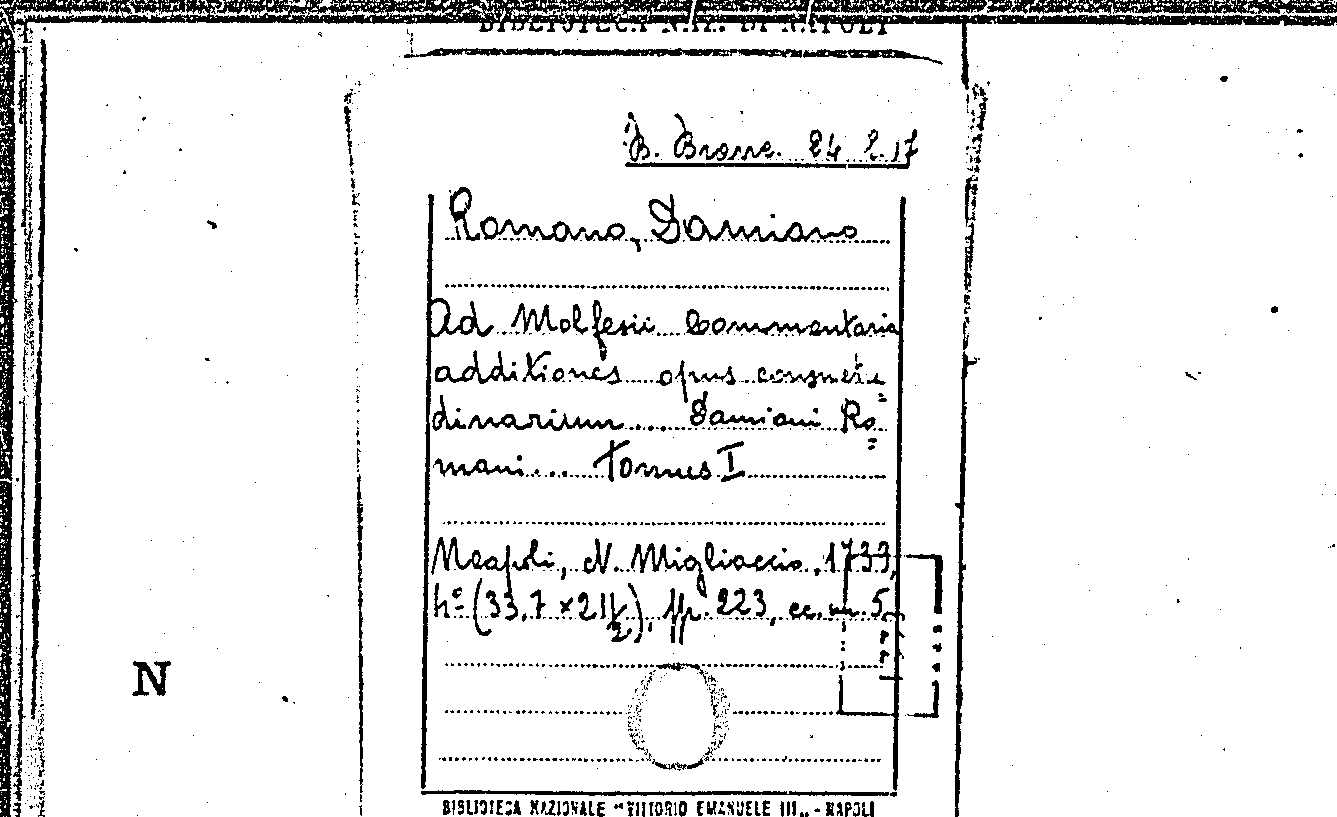 BIBLIOTECA NAZ. DI NAPOLI
B. Branc. 84 E 17
Romano, Damiano
Ad Molfesii Commentaria
additiones opus consuetu=
dinarium ... Damiani Ro=
mani ... Tomus I
Neapoli, N. Migliaccio, 1739,
4º (33,7 × 21 1/2), pp. 223, cc. nn. 5
N
BIBLIOTECA NAZIONALE "VITTORIO EMANUELE III" - NAPOLI